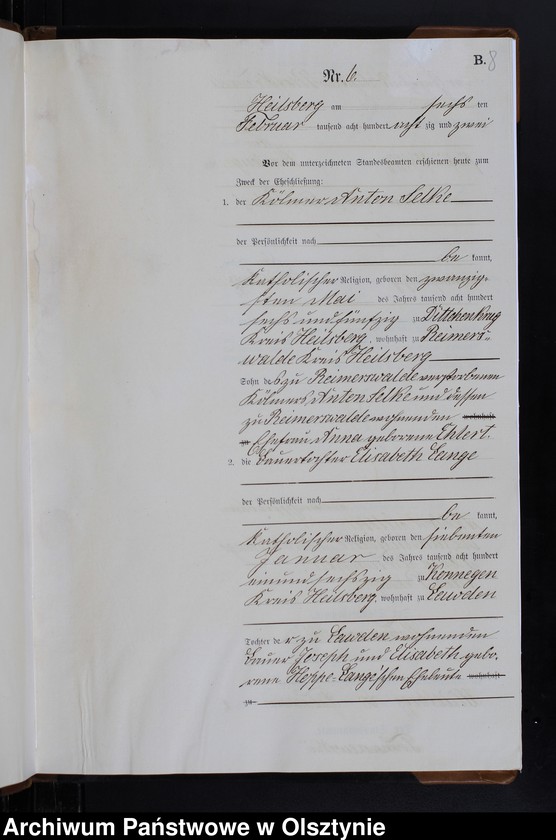 B. 8
Nr. 6.
Heilsberg am sechs ten
Februar tausend acht hundert acht zig und zwei
Vor dem unterzeichneten Standesbeamten erschienen heute zum
Zweck der Eheschließung:
1. der Kölmer Anton Selke
der Persönlichkeit nach
be kannt,
katholischer Religion, geboren den zwanzig-
sten Mai des Jahres tausend acht hundert
sechs und fünfzig zu Dittchenkrug
Kreis Heilsberg, wohnhaft zu Reimers-
walde Kreis Heilsberg
Sohn des zu Reimerswalde verstorbenen
Kölmers Anton Selke und dessen
zu Reimerswalde wohnenden wohnhaft
zu Ehefrau Anna geborene Ehlert.
2. die Bauertochter Elisabeth Lange
der Persönlichkeit nach
be kannt,
katholischer Religion, geboren den siebenten
Januar des Jahres tausend acht hundert
einundsechszig zu Konnegen
Kreis Heilsberg, wohnhaft zu Lawden
Tochter de r zu Lawden wohnenden
Bauer Joseph und Elisabeth gebo-
rene Hoppe-Lange'schen Eheleute wohnhaft
zu
Archiwum Państwowe w Olsztynie